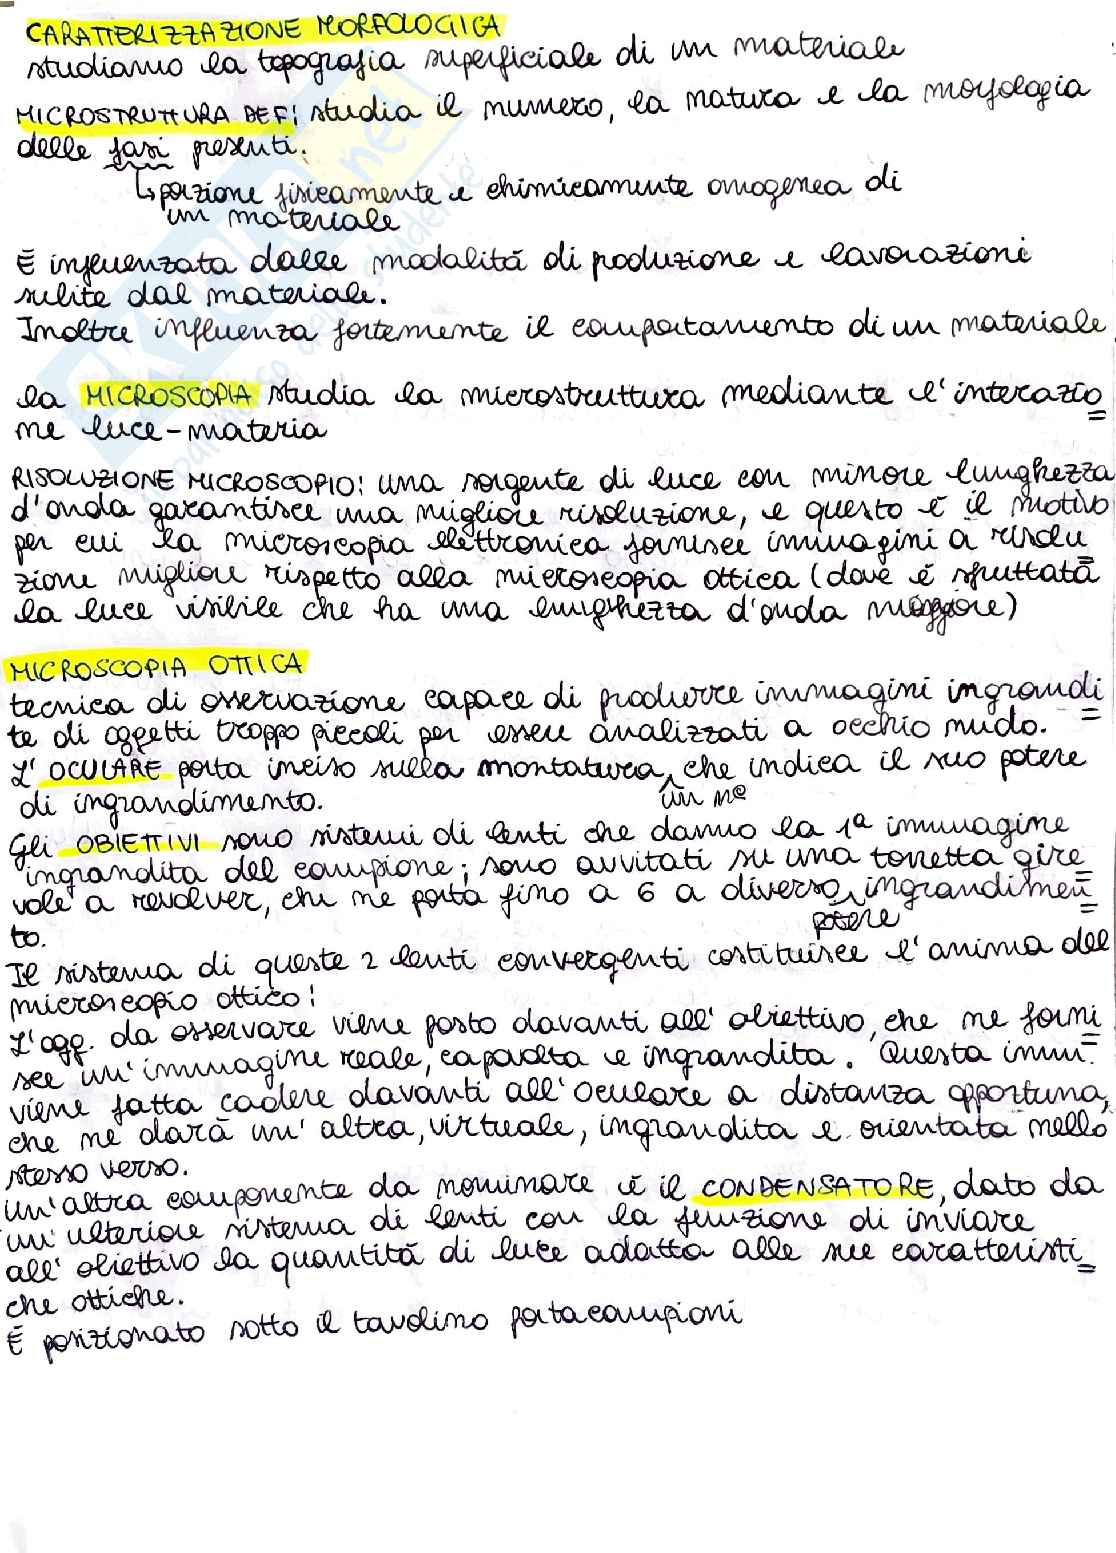 CARATTERIZZAZIONE MORFOLOGICA
studiamo la topografia superficiale di un materiale
MICROSTRUTTURA DEF: studia il numero, la natura e la morfologia
delle fasi presenti.
↳ porzione fisicamente e chimicamente omogenea di
un materiale
È influenzata dalle modalità di produzione e lavorazioni
subite dal materiale.
Inoltre influenza fortemente il comportamento di un materiale
la MICROSCOPIA studia la microstruttura mediante l'interazio=
ne luce-materia
RISOLUZIONE MICROSCOPIO: una sorgente di luce con minore lunghezza
d'onda garantisce una migliore risoluzione, e questo è il motivo
per cui la microscopia elettronica fornisce immagini a risolu=
zione migliore rispetto alla microscopia ottica (dove è sfruttata
la luce visibile che ha una lunghezza d'onda maggiore)
MICROSCOPIA OTTICA
tecnica di osservazione capace di produrre immagini ingrandi=
te di oggetti troppo piccoli per essere analizzati a occhio nudo.
L' OCULARE porta inciso sulla montatura, che indica il suo potere
di ingrandimento. un n°
Gli OBIETTIVI sono sistemi di lenti che danno la 1ª immagine
ingrandita del campione; sono avvitati su una torretta gire=
vole a revolver, che ne porta fino a 6 a diverso ingrandimen=
to. potere
Il sistema di queste 2 lenti convergenti costituisce l'anima del
microscopio ottico:
L'ogg. da osservare viene posto davanti all' obiettivo, che ne forni=
sce un'immagine reale, capovolta e ingrandita. Questa imm.
viene fatta cadere davanti all'oculare a distanza opportuna,
che ne darà un' altra, virtuale, ingrandita e orientata nello
stesso verso.
Un'altra componente da nominare è il CONDENSATORE, dato da
un' ulteriore sistema di lenti con la funzione di inviare
all' obiettivo la quantità di luce adatta alle sue caratteristi=
che ottiche.
È posizionato sotto il tavolino portacampioni